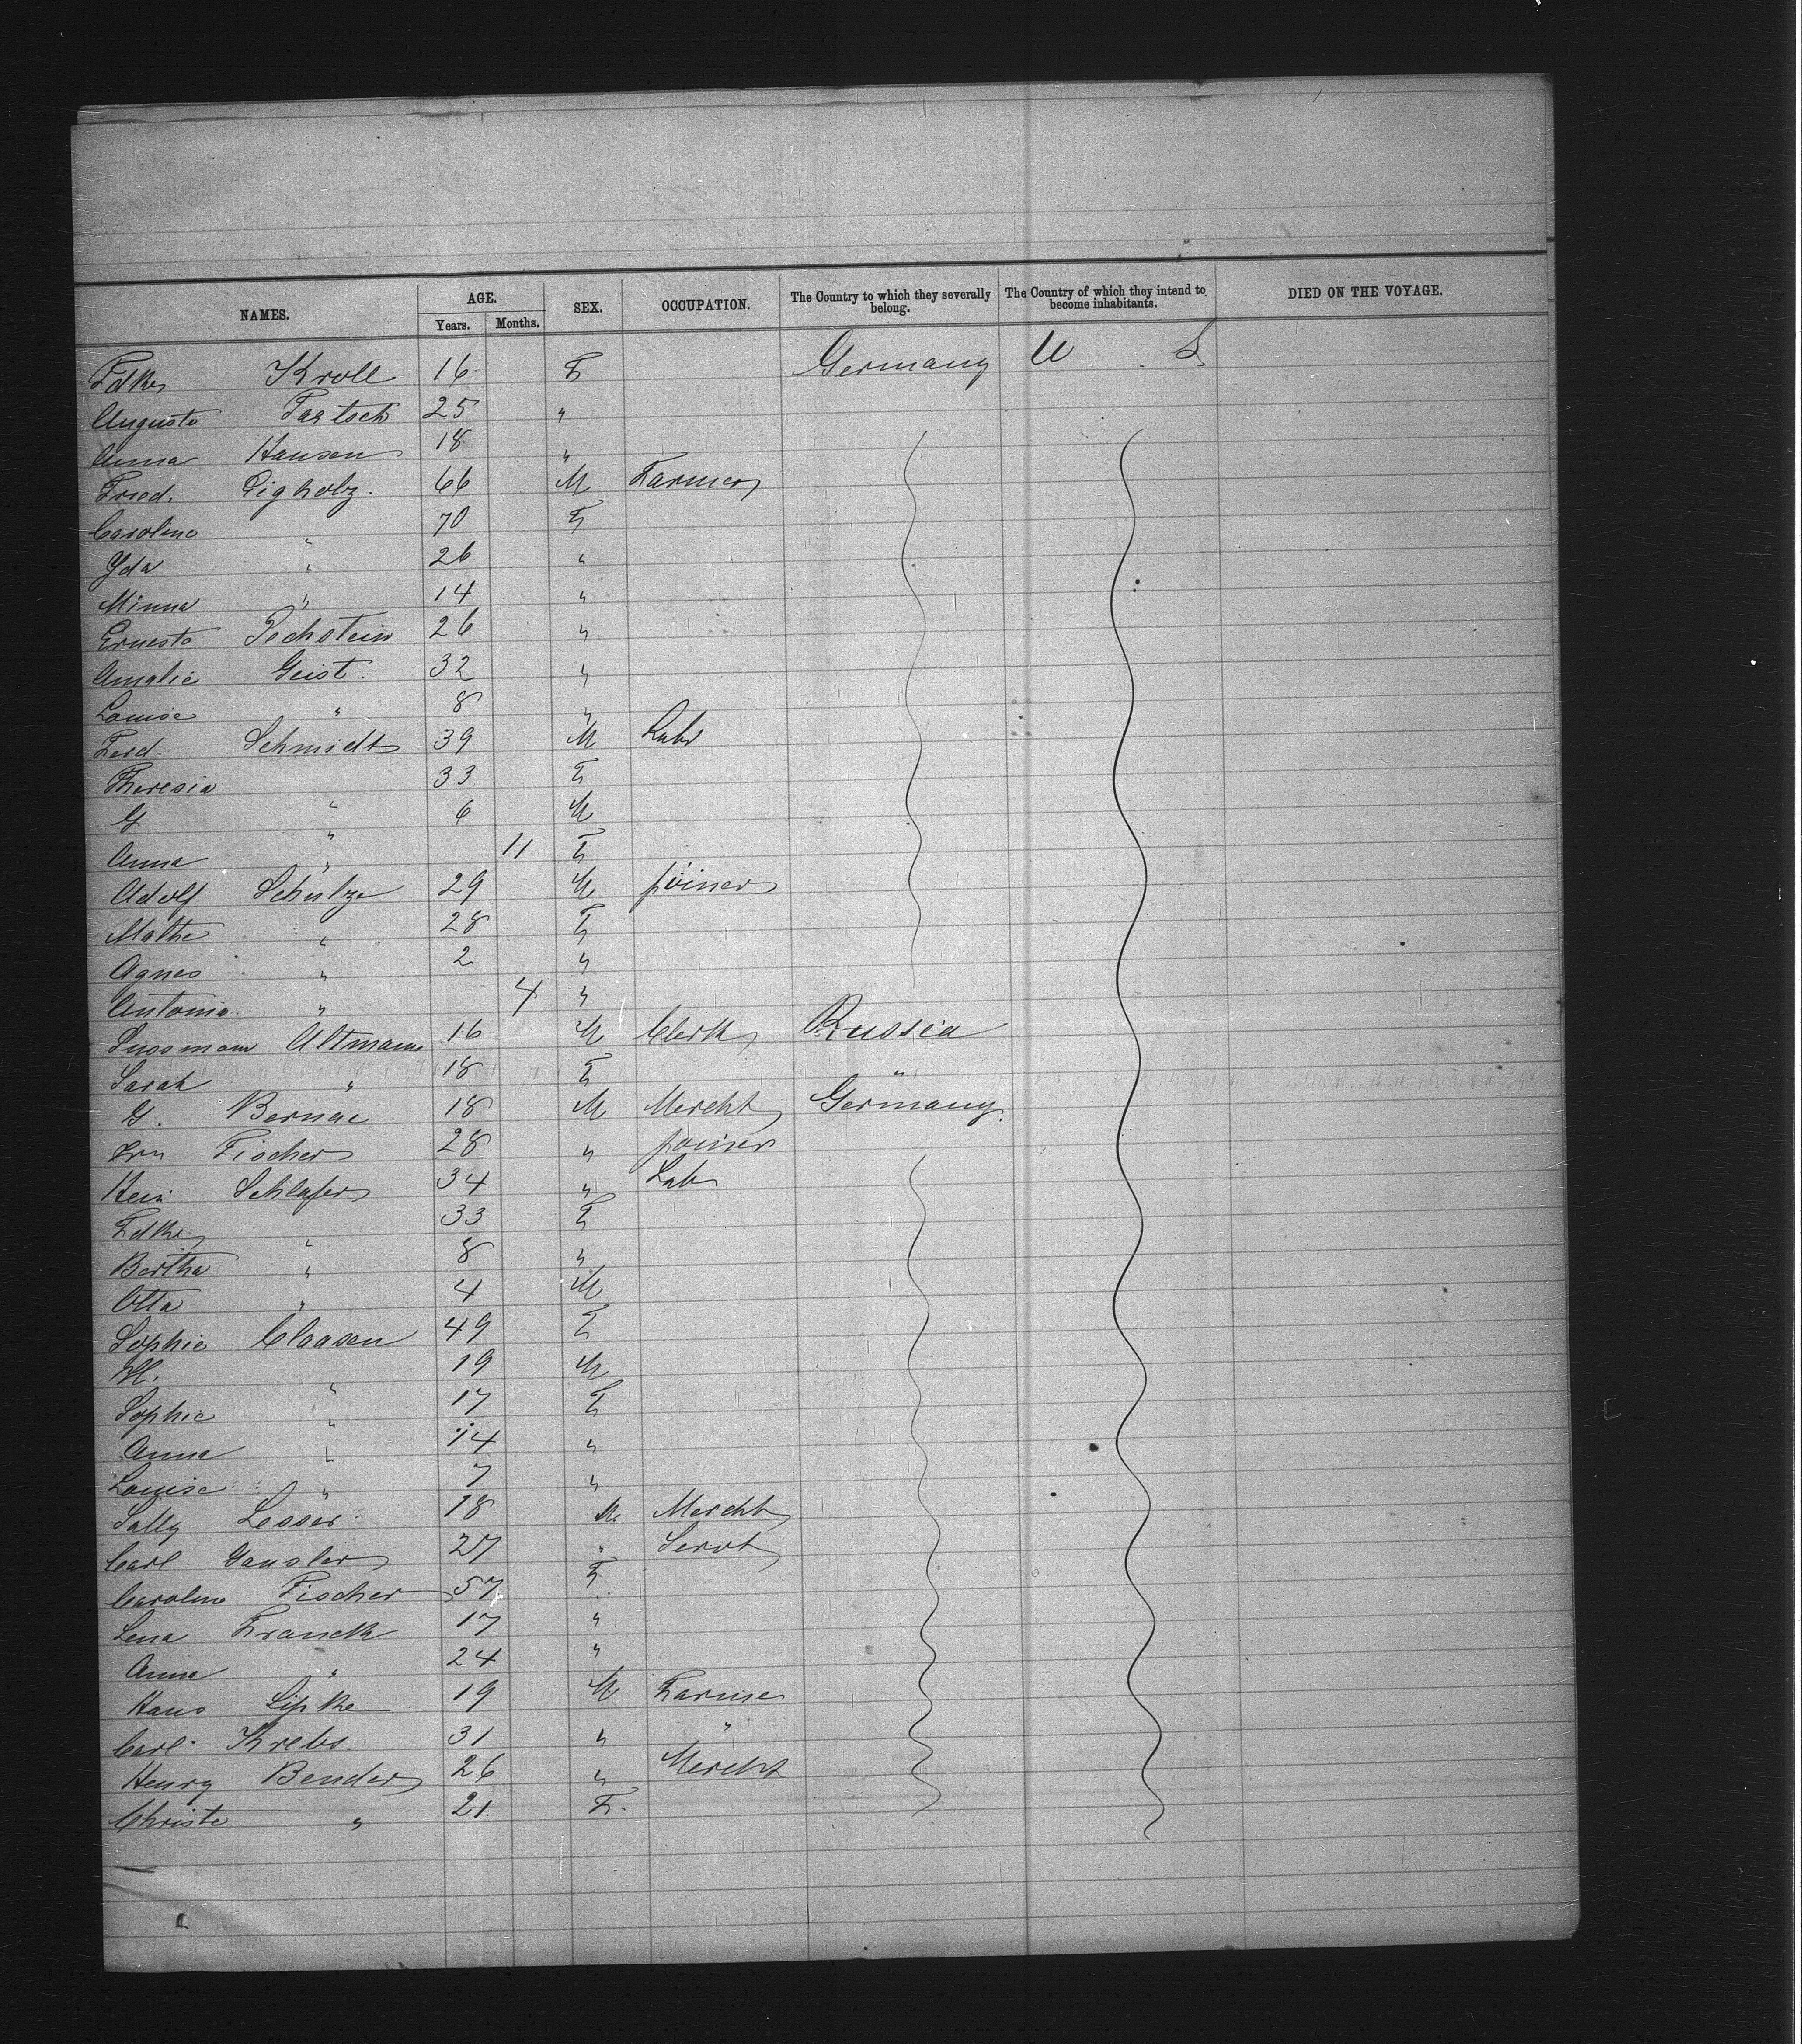 NAMES. AGE. SEX. OCCUPATION. The Country to which they severally belong. The Country of which they intend to become inhabitants. DIED ON THE VOYAGE.
Years. Months.
Fdke Kroll 16 F Germany U S
Auguste Partsch 25 "
Anna Hansen 18 "
Fried. Digholz. 66 M Farmer
Caroline " 70 F
Yda " 26 "
Minna " 14 "
Ernesto Pechstein 26 "
Amalie Geist. 32 "
Louise " 8 "
Ferd. Schmidt 39 M Labr
Theresia " 33 F
G " 6 M
Anna " 11 F
Adolf Schulze 29 M joiner
Malthe " 28 F
Agnes " 2 "
Antonia " 4 "
Sussmann Altmann 16 M Clerk Russia
Sarah " 18 F "
G. Bernae 18 M Mercht Germany.
Ern Fischer 28 " joiner
Hein Schlafer 34 " Lab
Fdke " 33 F
Bertha " 8 "
Otto " 4 M
Sophie Claasen 49 F
H. " 19 M
Sophie " 17 F
Anna " 14 "
Louise " 7 "
Sally Lesser 18 M Mercht
Carl Gansler 27 " Servt
Caroline Fischer 57 F
Lena Franck 17 "
Anna " 24 "
Hans Lipke 19 M Farme
Carl Krebs. 31 " "
Henry Bender 26 " Mercht
Christe " 21. F.